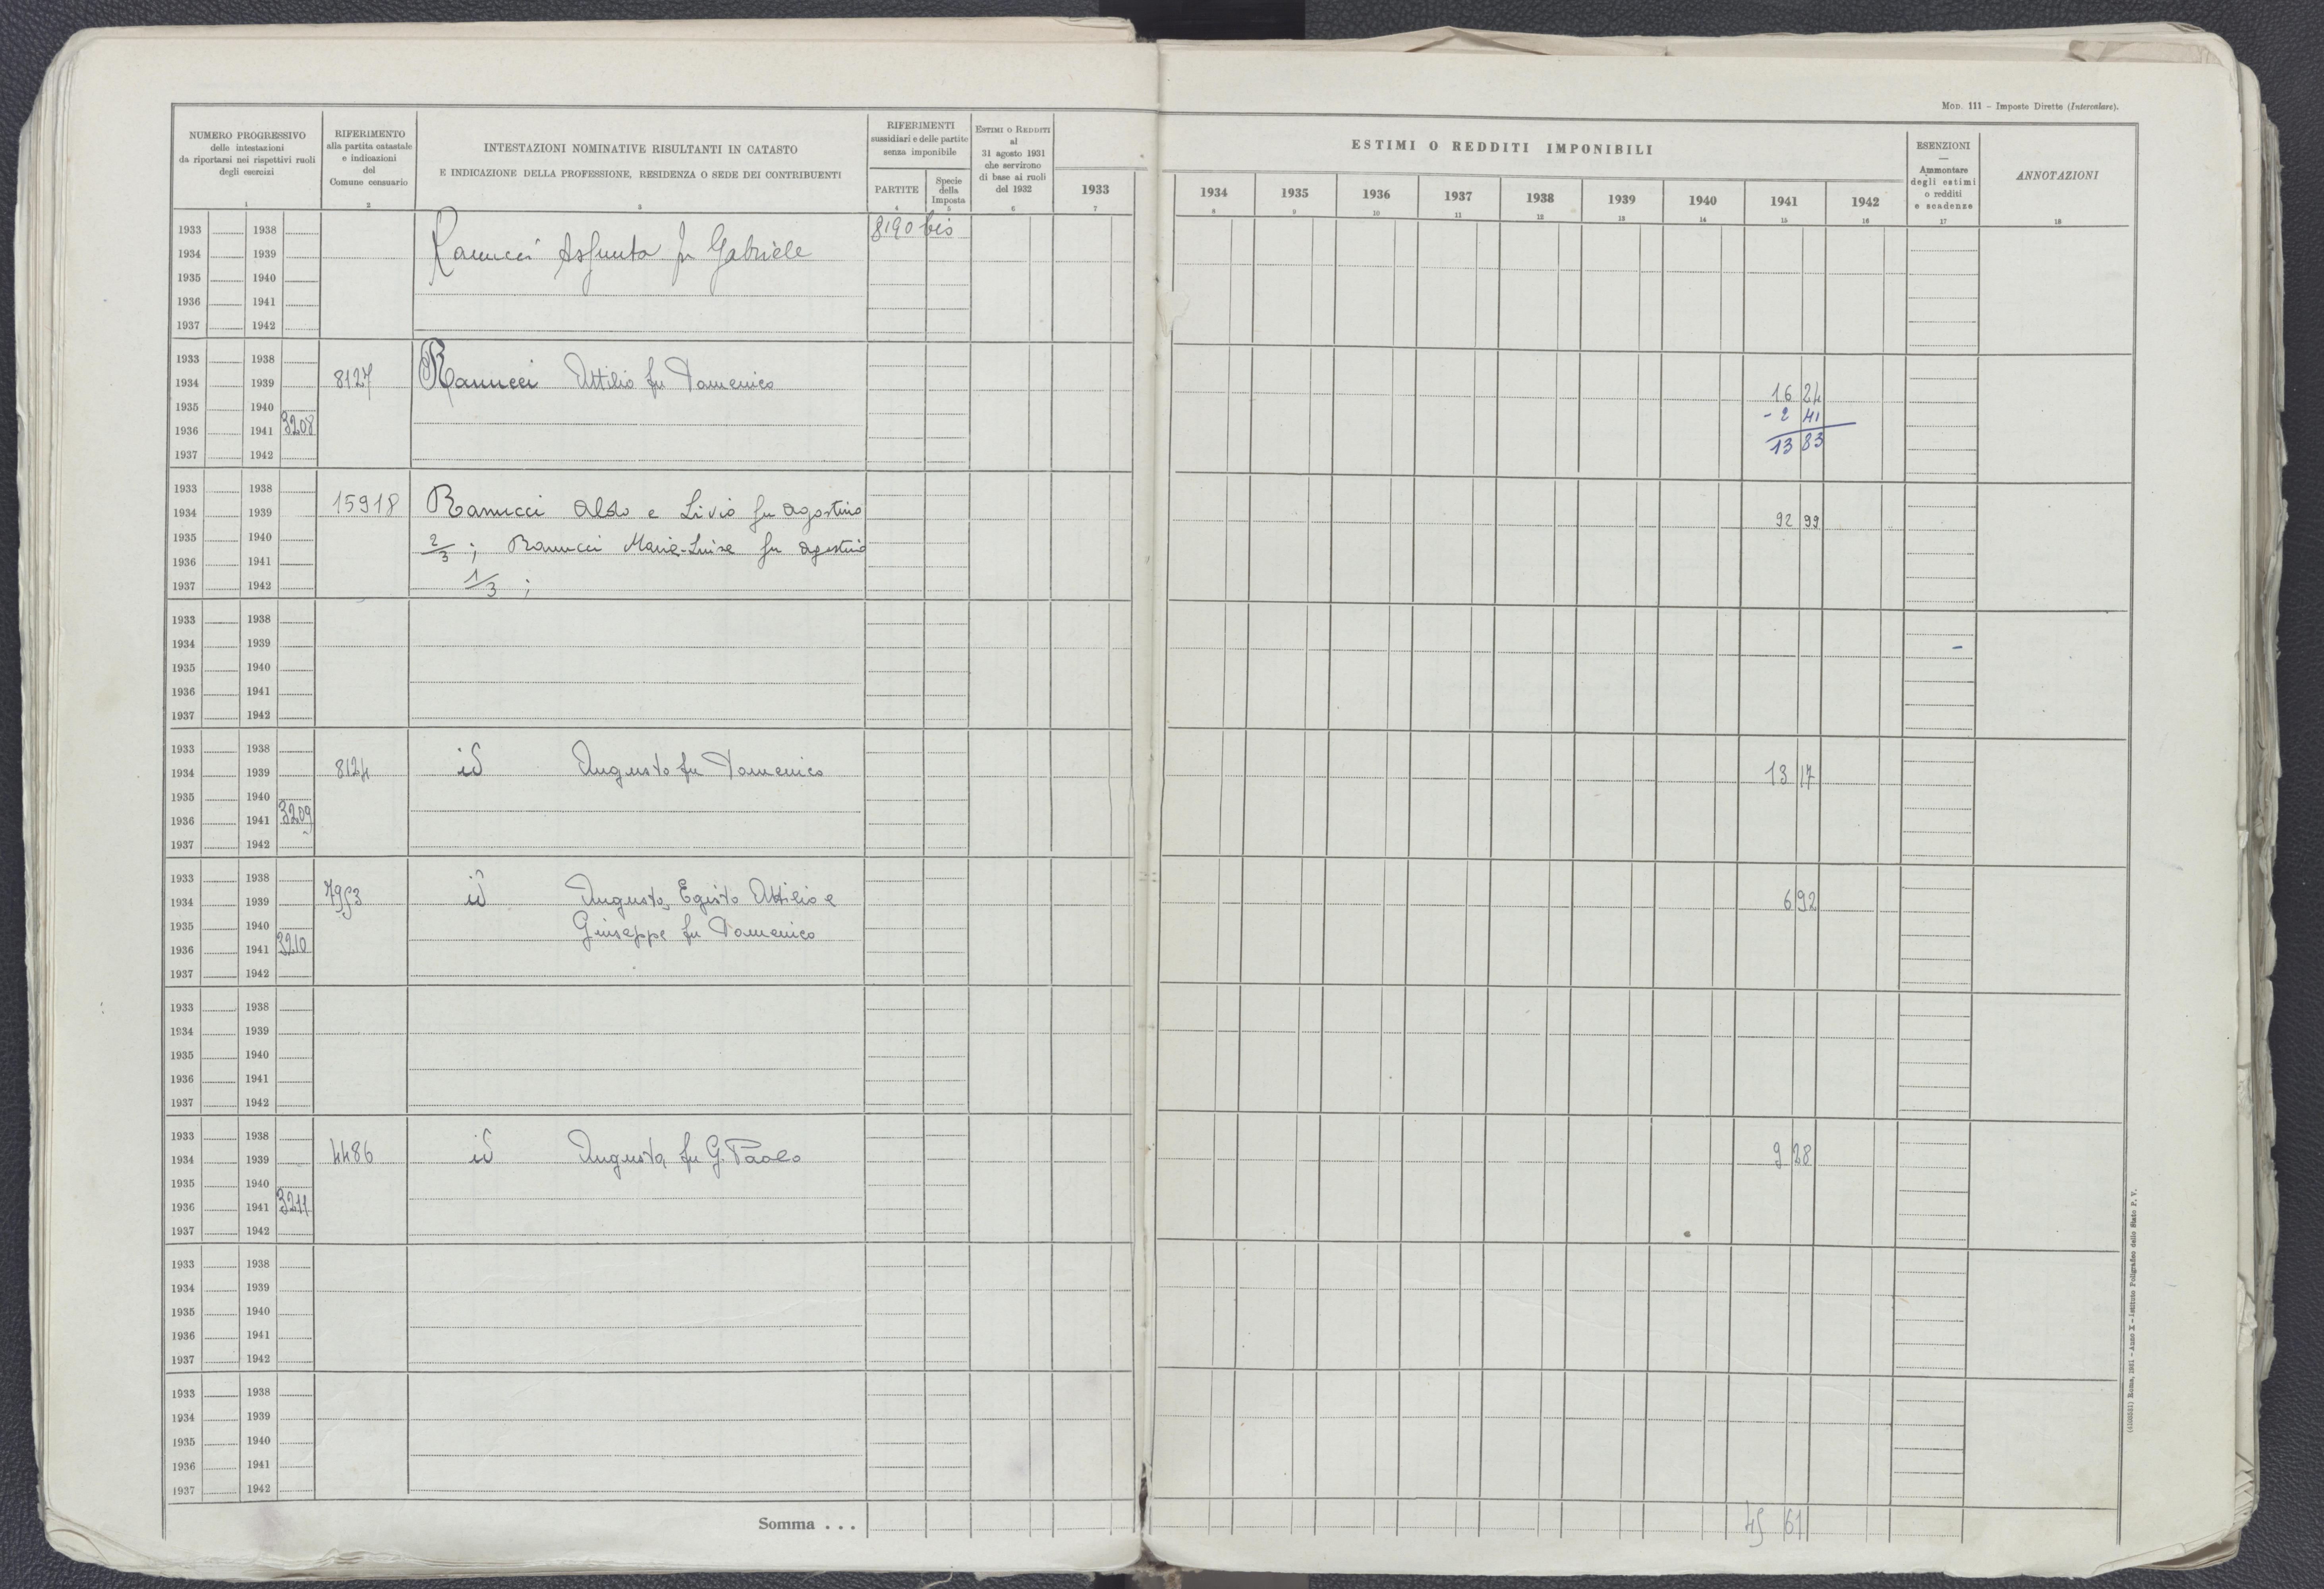 MOD. 111 – Imposte Dirette (Intercalare).
NUMERO PROGRESSIVO
delle intestazioni
da riportarsi nei rispettivi ruoli
degli esercizi
1
RIFERIMENTO
alla partita catastale
e indicazioni
del
Comune censuario
2
INTESTAZIONI NOMINATIVE RISULTANTI IN CATASTO
E INDICAZIONE DELLA PROFESSIONE, RESIDENZA O SEDE DEI CONTRIBUENTI
3
RIFERIMENTI
sussidiari e delle partite
senza imponibile
PARTITE
4
Specie
della
Imposta
5
ESTIMI O REDDITI
al
31 agosto 1931
che servirono
di base ai ruoli
del 1932
6
1933
7
ESTIMI O REDDITI IMPONIBILI
1934 1935 1936 1937 1938 1939 1940 1941 1942
8 9 10 11 12 13 14 15 16
ESENZIONI
—
Ammontare
degli estimi
o redditi
e scadenze
17
ANNOTAZIONI
18
1933 1938 8190 bis
1934 1939 Ranucci Assunta fu Gabriele
1935 1940
1936 1941
1937 1942
1933 1938
1934 1939 8127 Ranucci Attilio fu Domenico 16 24
1935 1940 - 2 41
1936 1941 3208 13 83
1937 1942
1933 1938
1934 1939 15918 Ranucci Aldo e Livio fu Agostino 92 99
1935 1940 2/3 ; Ranucci Maria-Luisa fu Agostino
1936 1941
1937 1942 1/3 ;
1933 1938
1934 1939
1935 1940
1936 1941
1937 1942
1933 1938
1934 1939 8124 id Augusto fu Domenico 13 17
1935 1940
1936 1941 3209
1937 1942
1933 1938
1934 1939 7953 id Augusto, Egisto Attilio e 6 92
1935 1940 Giuseppe fu Domenico
1936 1941 3210
1937 1942
1933 1938
1934 1939
1935 1940
1936 1941
1937 1942
1933 1938
1934 1939 4486 id Augusta fu G. Paolo 9 28
1935 1940
1936 1941 3211
1937 1942
1933 1938
1934 1939
1935 1940
1936 1941
1937 1942
1933 1938
1934 1939
1935 1940
1936 1941
1937 1942
Somma . . . 45 61
Roma, 1931 – Anno X – Istituto Poligrafico dello Stato P. V.